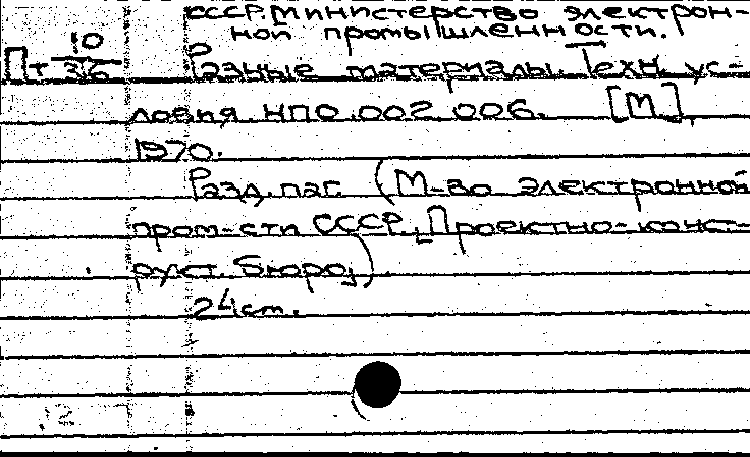 СССР. Министерство электрон-
ной промышленности.
Пт 10/376 Разные материалы. Техн. ус-
ловия НПО.002.006. [М.],
1970.
Разд. паг. (М-во электронной
пром-сти СССР. Проектно-конст-
рукт. бюро)
24 см.
12